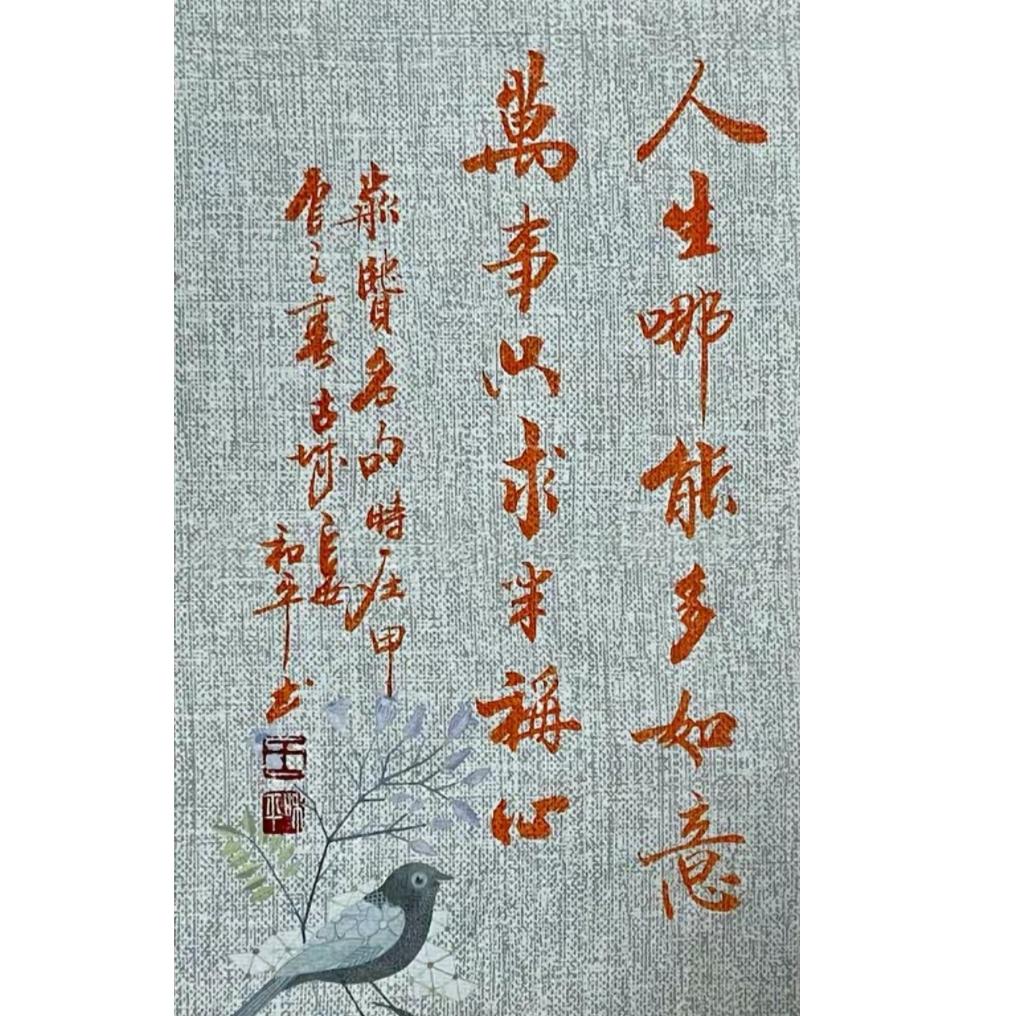 人生哪能多如意
萬事只求半稱心
蘓賢名句時在甲
辰之春古城長安
和平书
王
和平